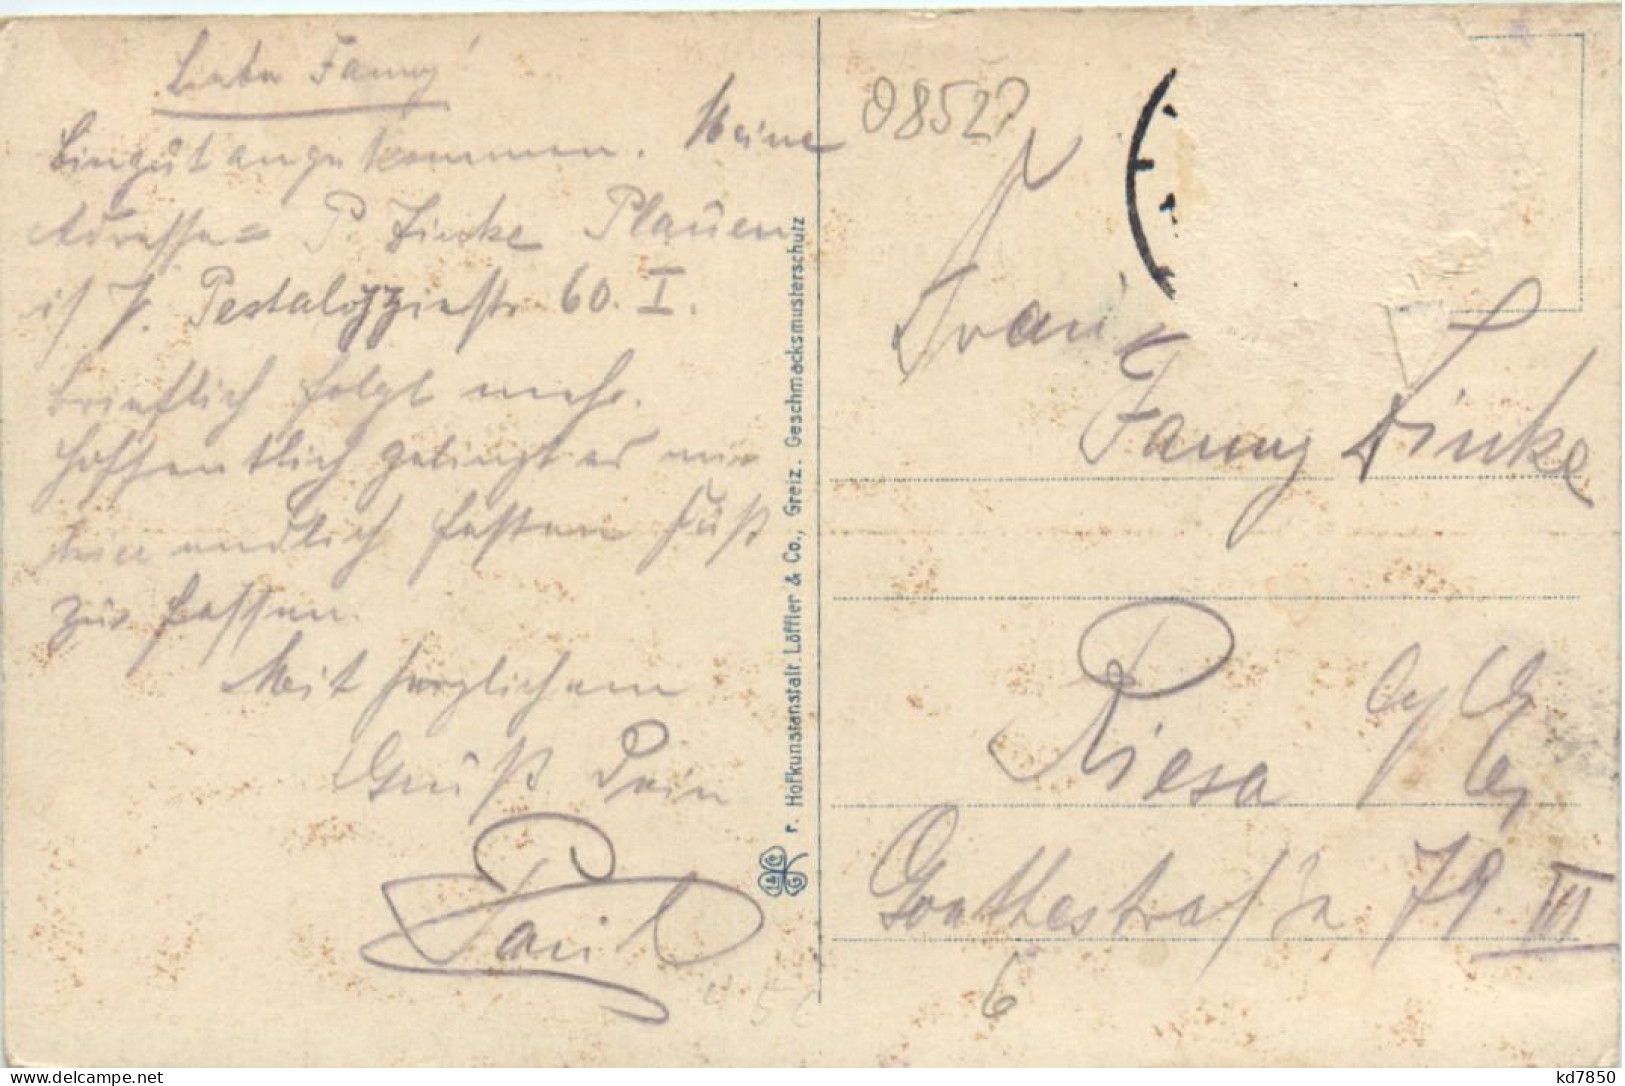 Liebe Fanny!
Bin gut angekommen. Meine
Adresse = P. Zinke Plauen
i/ V. Pestalozziestr. 60. I.
Brieflich folgt mehr.
Hoffentlich gelingt es mir
hier endlich festen Fuß
zu fassen.
Mit herzlichem
Gruß Dein
Paul
r. Hofkunstanstalt Löffler & Co., Greiz. Geschmacksmusterschutz
08527
Frau
Fanny Zinke
Riesa
Goethestraße 79. III
6
kd7850